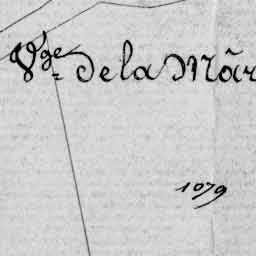 Vge de la Mãr
1079